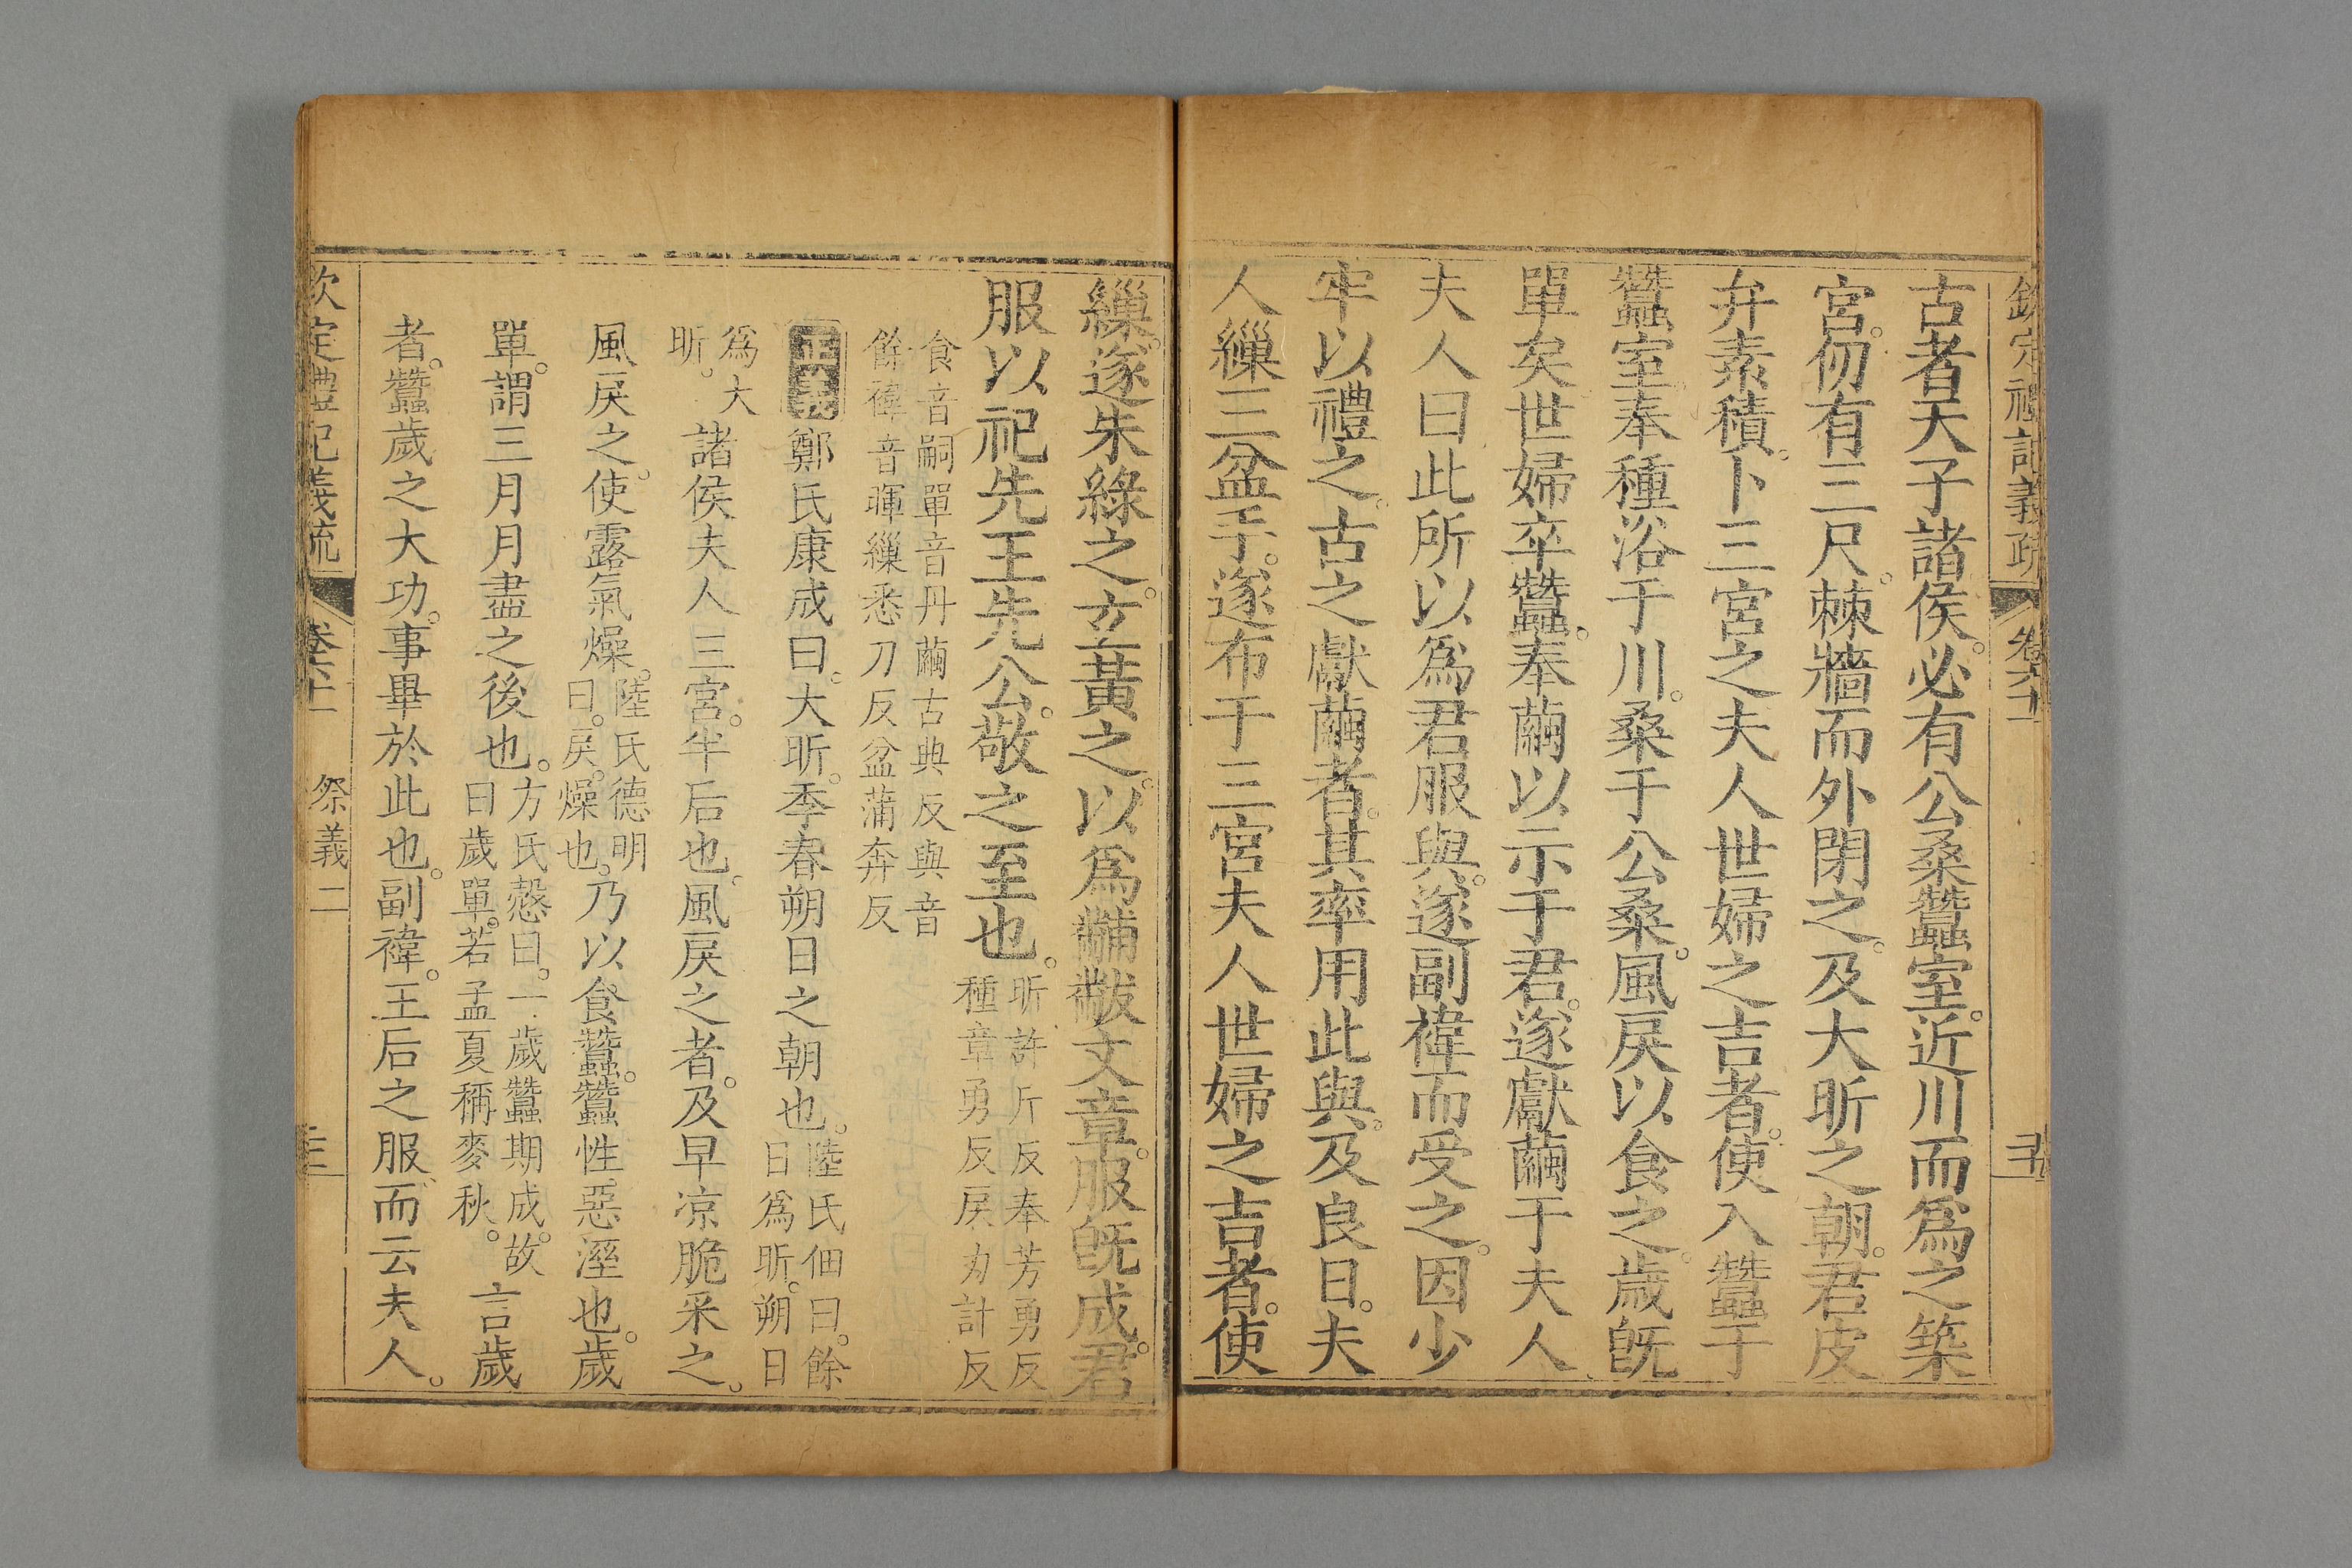 欽定禮記義疏 卷六十一
古者天子諸侯。必有公桑蠶室。近川而爲之築
宮。仞有三尺。棘牆而外閉之。及大昕之朝。君皮
弁素積。卜三宮之夫人世婦之吉者。使入蠶于
蠶室。奉種浴于川。桑于公桑。風戾以食之。歲旣
單矣。世婦卒蠶。奉繭以示于君。遂獻繭于夫人
夫人曰此所以爲君服與。遂副褘而受之。因少
牢以禮之。古之獻繭者。其率用此與。及良日。夫
人繅三盆手。遂布于三宮夫人世婦之吉者。使
繅。遂朱綠之。玄黃之。以爲黼黻文章。服旣成。君
服以祀先王先公。敬之至也。
昕許斤反奉芳勇反
種章勇反戾力計反
食音嗣單音丹繭古典反與音
餘褘音暉繅悉刀反盆蒲奔反
正義 鄭氏康成曰。大昕。季春朔日之朝也。
陸氏佃曰。餘
日爲昕。朔日
爲大
昕。
諸侯夫人三宮。半后也。風戾之者。及早凉脆采之。
風戾之。使露氣燥。
陸氏德明
曰。戾。燥也。
乃以食蠶。蠶性惡溼也。歲
單。謂三月月盡之後也。
方氏慤曰。一歲蠶期成。故
曰歲單。若孟夏稱麥秋。
言歲
者。蠶歲之大功。事畢於此也。副褘。王后之服、而云夫人。
欽定禮記義疏 卷六十一 祭義二